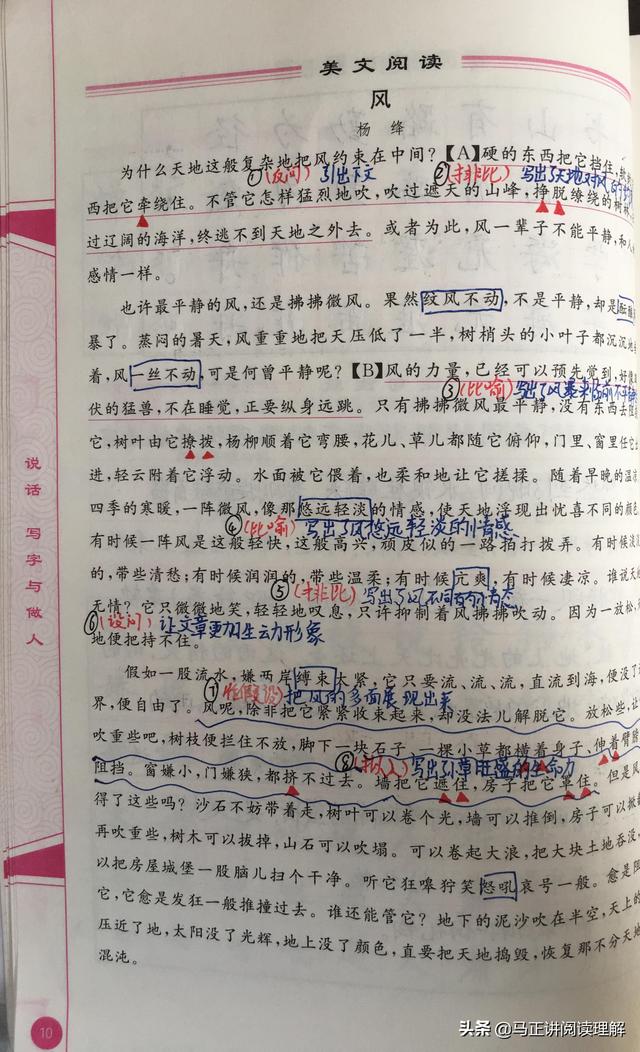 美文阅读
风
杨绛
为什么天地这般复杂地把风约束在中间？【A】硬的东西把它挡住，
①（反问）引出下文 ②（排比）写出了天地对风的
西把它牵绕住。不管它怎样猛烈地吹，吹过遮天的山峰，挣脱缭绕的树林，
过辽阔的海洋，终逃不到天地之外去。或者为此，风一辈子不能平静，和人
感情一样。
也许最平静的风，还是拂拂微风。果然纹风不动，不是平静，却是酝酿
暴了。蒸闷的暑天，风重重地把天压低了一半，树梢头的小叶子都沉沉地
着，风一丝不动，可是何曾平静呢？【B】风的力量，已经可以预先觉到，好像
③（比喻）写出了风暴来临前不平静
伏的猛兽，不在睡觉，正要纵身远跳。只有拂拂微风最平静，没有东西去
它，树叶由它撩拨，杨柳顺着它弯腰，花儿、草儿都随它俯仰，门里、窗里任它出
进，轻云附着它浮动。水面被它偎着，也柔和地让它搓揉。随着早晚的温凉、
四季的寒暖，一阵微风，像那悠远轻淡的情感，使天地浮现出忧喜不同的颜色
④（比喻）写出了风悠远轻淡的情感
有时候一阵风是这般轻快，这般高兴，顽皮似的一路拍打拨弄。有时候淡淡
的，带些清愁；有时候润润的，带些温柔；有时候亢爽，有时候凄凉。谁说天
⑤（排比）写出了风不同的情态
无情？它只微微地笑，轻轻地叹息，只许抑制着风拂拂吹动。因为一放松，
⑥（设问）让文章更加生动形象
地便把持不住。
假如一股流水，嫌两岸缚束太紧，它只要流、流、流，直流到海，便没了
⑦（假设）把风的多面展现出来
界，便自由了。风呢，除非把它紧紧收束起来，却没法儿解脱它。放松些，让
吹重些吧，树枝便拦住不放，脚下一块石子，一棵小草都横着身子、伸着臂膀
⑧（拟人）写出了小草旺盛的生命力
阻挡。窗嫌小，门嫌狭，都挤不过去。墙把它遮住，房子把它罩住。但是风
得了这些吗？沙石不妨带着走，树叶可以卷个光，墙可以推倒，房子可以掀
再吹重些，树木可以拔掉，山石可以吹塌。可以卷起大浪，把大块土地吞没，
以把房屋城堡一股脑儿扫个干净。听它狂嗥狞笑怒吼哀号一般。愈是阻
它，它愈是发狂一般推撞过去。谁还能管它？地下的泥沙吹在半空，天上的
压近了地，太阳没了光辉，地上没了颜色，直要把天地捣毁，恢复那不分天地
混沌。
说话 写字与做人
10
头条 @马正讲阅读理解